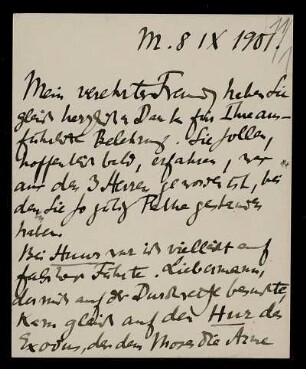 M. 8 IX 1901.
Mein verehrter Freund, haben Sie
gleich herzlichen Dank für Ihre aus-
führliche Belehrung. Sie sollen,
hoffentlich bald, erfahren, was
aus den 3 Herren geworden ist, bei
denen Sie so gütig Pathe gestanden
haben.
Bei Hunus war ich vielleicht auf
falscher Fährte. Liebermann,
der mich auf der Durchreise besuchte,
kam gleich auf den Hur des
Exodus, der dem Moses die Arme